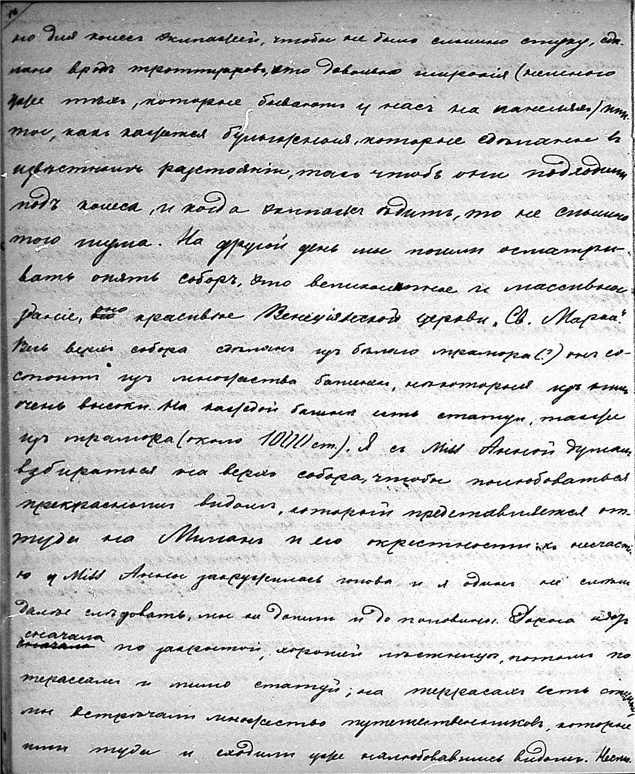 но для колесъ экипажей, чтобы не было слышно стуку, сдѣ-
лано вродѣ троттуаровъ, это довольно широкія (немного
уже тѣхъ, которые бываютъ у насъ на панеляхъ) пли-
ты, какъ кажется булыжныя, которые сдѣланые въ
извѣстномъ разстояніи, такъ чтобъ они подходили
подъ колеса, и когда экипажъ ѣдитъ, то не слышно
того шума. На другой день мы пошли осматри-
вать опять соборъ, это великолѣпное и массивное
зданіе, оно красивѣе Венеціянской церкви „Св. Марка"
Весь верхъ собора сдѣланъ изъ бѣлаго мрамора (?) онъ со-
стоитъ изъ множества башенъ, нѣкоторыя изъ нихъ
очень высоки. На каждой башнѣ есть статуи, также
изъ мрамора (около 1000 ст). Я съ Miss Анной думали
взбираться на верхъ собора, чтобы полюбоваться
прекраснымъ видомъ, который представляется от-
туда на Миланъ и его окрестности, къ несчасть-
ю у Miss Анны закружилась голова и я одинъ не смѣлъ
далѣе слѣдовать, мы не дошли и до половины. Дорога идетъ
сначала по закрытой, хорошей лѣстницѣ, потомъ по
терассамъ и мимо статуй; на террасахъ есть
мы встрѣчали множество путешественниковъ, которые
шли туда и сходили уже налюбовавшись видомъ.